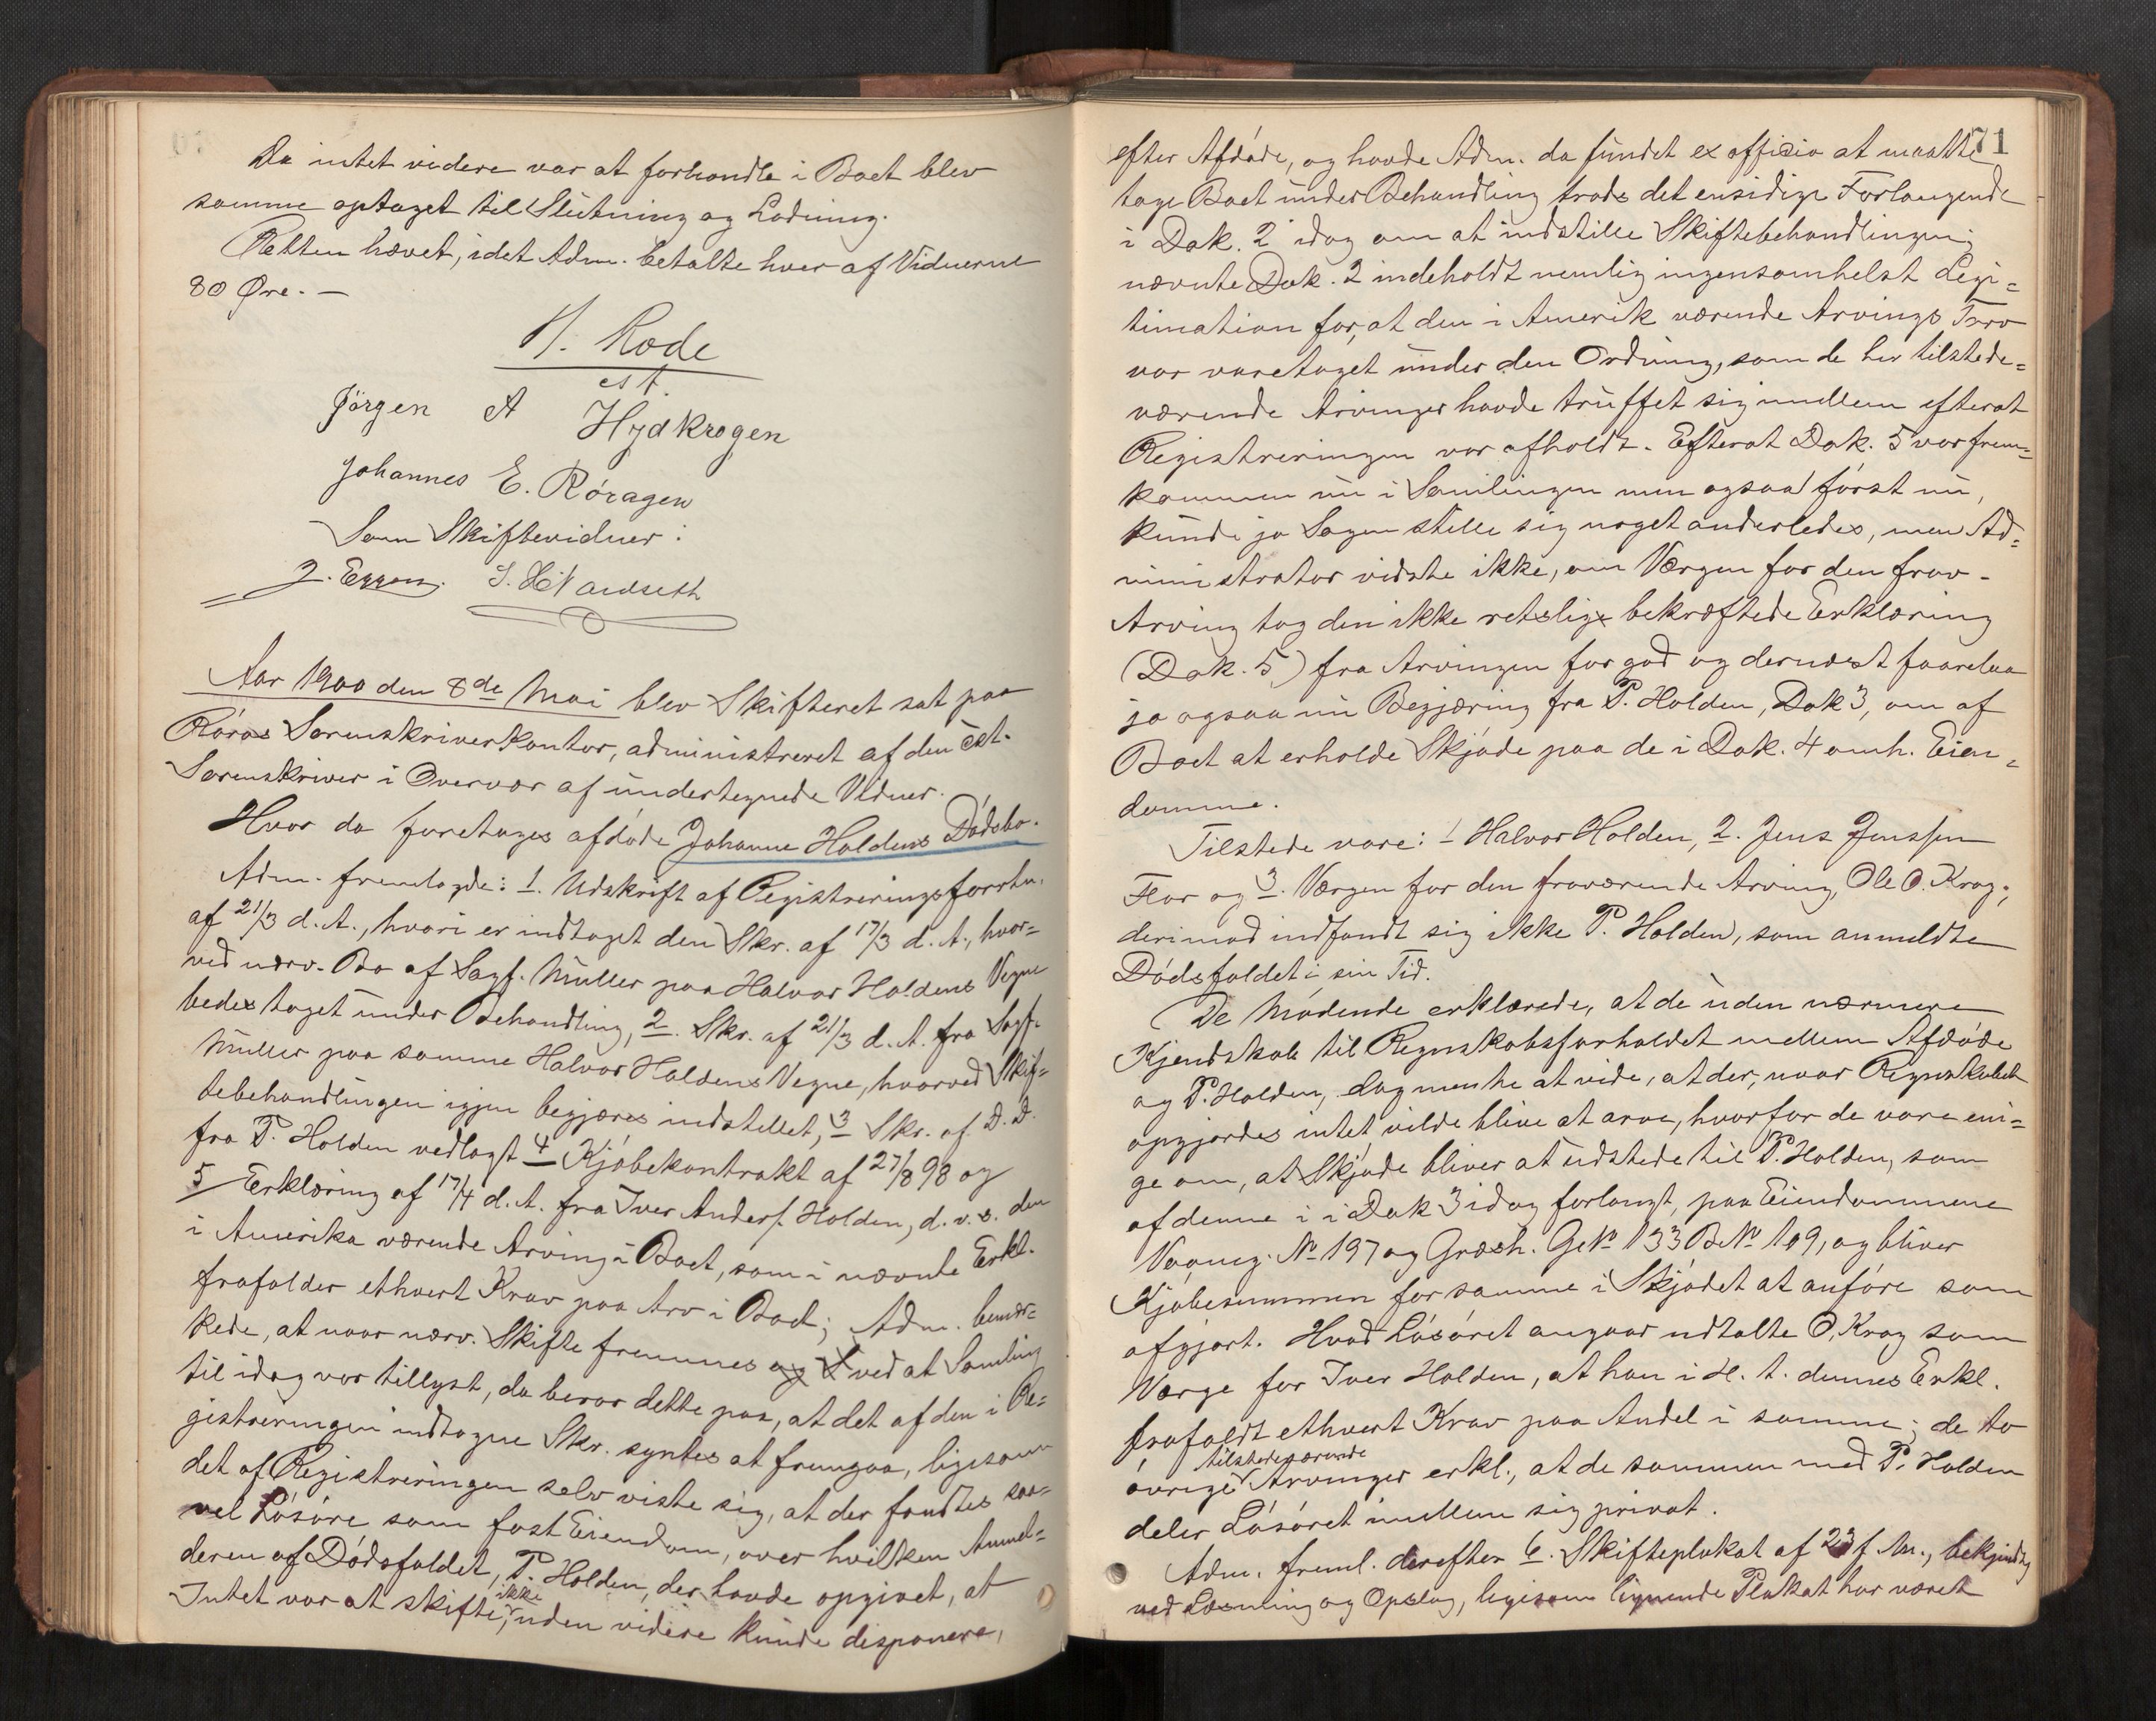 Da intet videre var at forhandle i Boet blev
samme optaget til Slutning og Lodning.
Retten hævet, idet Adm. betalte hver af Vidnerne
80 Øre. —
H. Rode
cst.
Jörgen A Hydkrogen
Johannes E. Róragen
Som Skiftevidner:
J. Eggen. S. Hardseth
Aar 1900 den 8de Mai blev Skifteret sat paa
Róros Sorenskriverkontor, administreret af den cst.
Sorenskriver i Overvær af undertegnede Vidner.
Hvor da foretages afdóde Johanne Holdens Dódsbo.
Adm. fremlagde: 1. Udskrift af Registreringsforrtn.
af 21/3 d. A., hvori er indtaget den Skr. af 17/3 d. A., hvor=
ved nærv. Bo af Sagf. Müller paa Halvor Holdens Vegne
bedes taget under Behandling, 2. Skr. af 21/3 d. A. fra Sagf.
Müller paa samme Halvor Holdens Vegne, hvorved Skif=
tebehandlingen igjen begjæres indstillet, 3 Skr. af D. D.
fra P. Holden vedlagt 4 Kjóbekontrakt af 27/8 98 og
5 Erklæring af 17/4 d. A. fra Iver Anders. Holden, d. v. s. den
i Amerika værende Arving i Boet, som i nævnte Erkl.
frafalder ethvert Krav paa Arv i Boet; Adm. bemær=
kede, at naar nærv. Skifte fremmes og S ved at Samling
til idag var tillyst, da beror dette paa, at det af den i Re=
gistreringen indtagne Skr. syntes at fremgaa, ligesom
det af Registreringen selv viste sig, at der fandtes saa=
vel Lósóre som fast Eiendom, over hvilken Anmel=
deren af Dódsfaldet, P. Holden, der havde opgivet, at
Intet var at skifte, ikke uden videre kunde disponere,
71
efter Afdóde, og havde Adm. da fundet ex officio at maatte
tage Boet under Behandling trods det ensidige Forlangende
i Dok. 2 idag om at indstille Skiftebehandlingen;
nævnte Dok. 2 indeholdt nemlig ingensomhelst Legi=
timation for, at den i Amerik værende Arvings Tarv
var varetaget under den Ordning, som de her tilstede=
værende Arvinger havde truffet sig imellem efterat
Registreringen var afholdt. Efterat Dok. 5 var frem=
kommen nu i Samlingen men ogsaa fórst nu,
kunde jo Sagen stille sig noget anderledes, men Ad=
ministrator vidste ikke, om Værgen for den frav-
Arving tog den ikke retslige bekræftede Erklæring
(Dok. 5) fra Arvingen for god og dernæst foorelaa
jo ogsaa nu Begjæring fra P. Holden, Dok 3, om af
Boet at erholde Skjóde paa de i Dok. 4 omh. Eien=
domme.
Tilstede vare: 1 Halvor Holden, 2. Jens Jenssen
Flor og 3. Værgen for den fraværende Arving, Ole O. Krog;
derimod indfandt sig ikke P. Holden, som anmeldte
Dódsfaldet i sin Tid.
De Mødende erklærede, at de uden nærmere
Kjendskab til Regnskabsforholdet mellem Afdóde
og P. Holden, dog mente at vide, at der, naar Regnskabet
opgjordes intet vilde blive at arve, hvorfor de vare eni=
ge om, at Skjóde bliver at udstede til P. Holden, som
af denne i i Dok 3 idag forlangt, paa Eiendommene
Vaaneg. No 197 og Græsh. G.No 133 B.No 109, og bliver
Kjóbesummen for samme i Skjódet at anfóre som
afgjort. Hvad Lósóret angaar udtalte O. Krog som
Værge for Iver Holden, at han i H. t. dennes Erkl.
frafaldt ethvert Krav paa Andel i samme; de to
óvrige tilstedeværende Arvinger erkl., at de sammen med P. Holden
deler Lósóret imellem sig privat.
Adm. freml. derefter 6. Skifteplakat af 23 f. M., bekjendtg
ved Læsning og Opslag, ligesom lignende Plakat har været